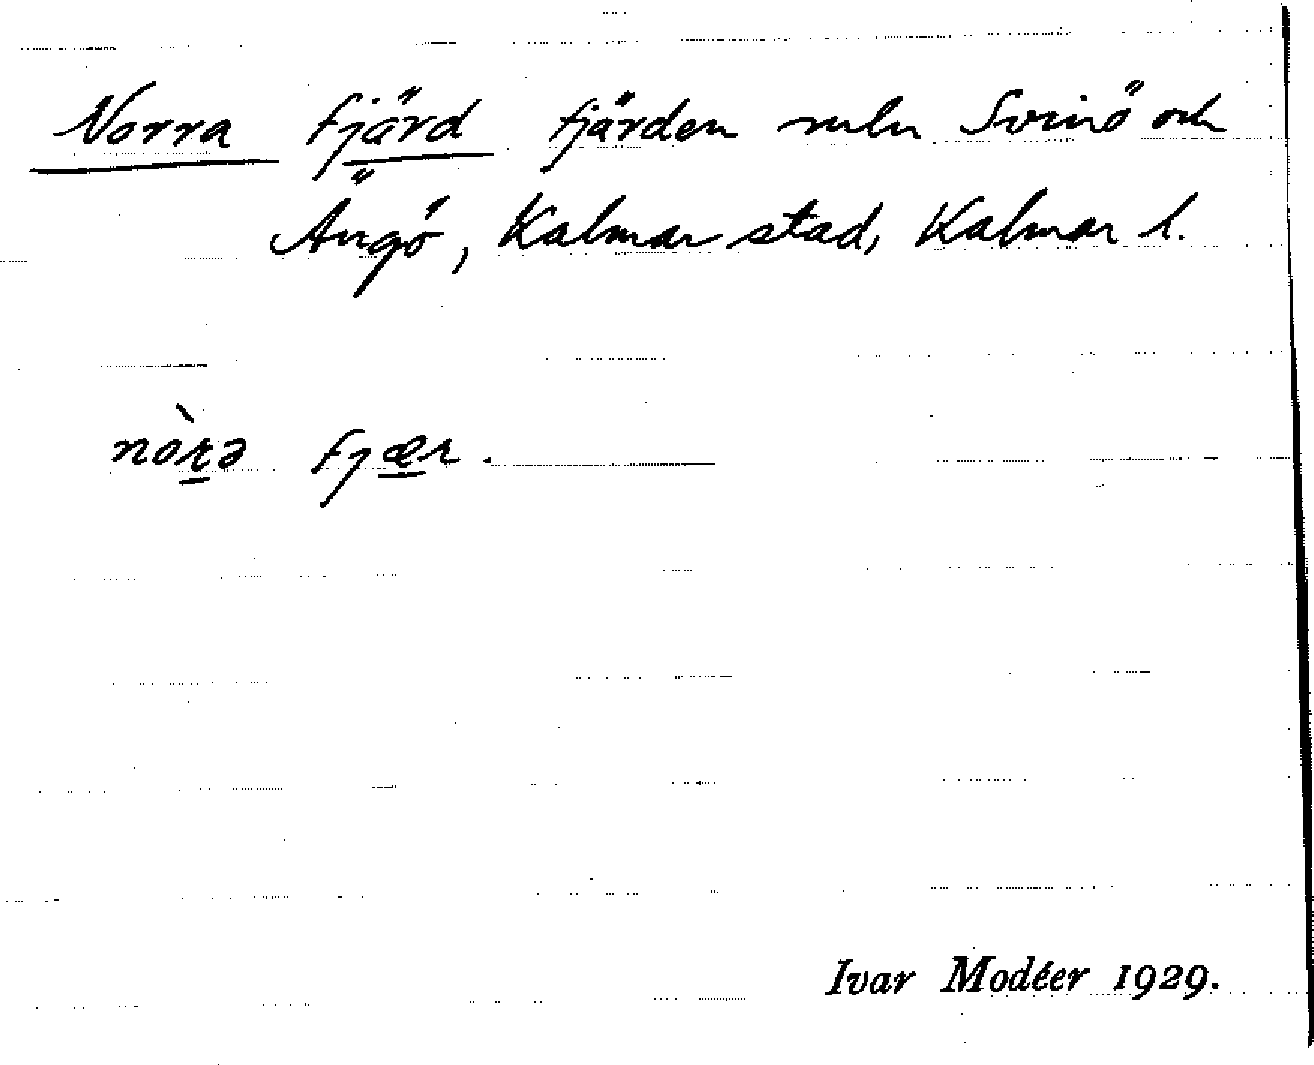 Norra fjärd fjärden mln Svinö och
Ängö, Kalmar stad, Kalmar l.
nòrə fjær.
Ivar Modéer 1929.